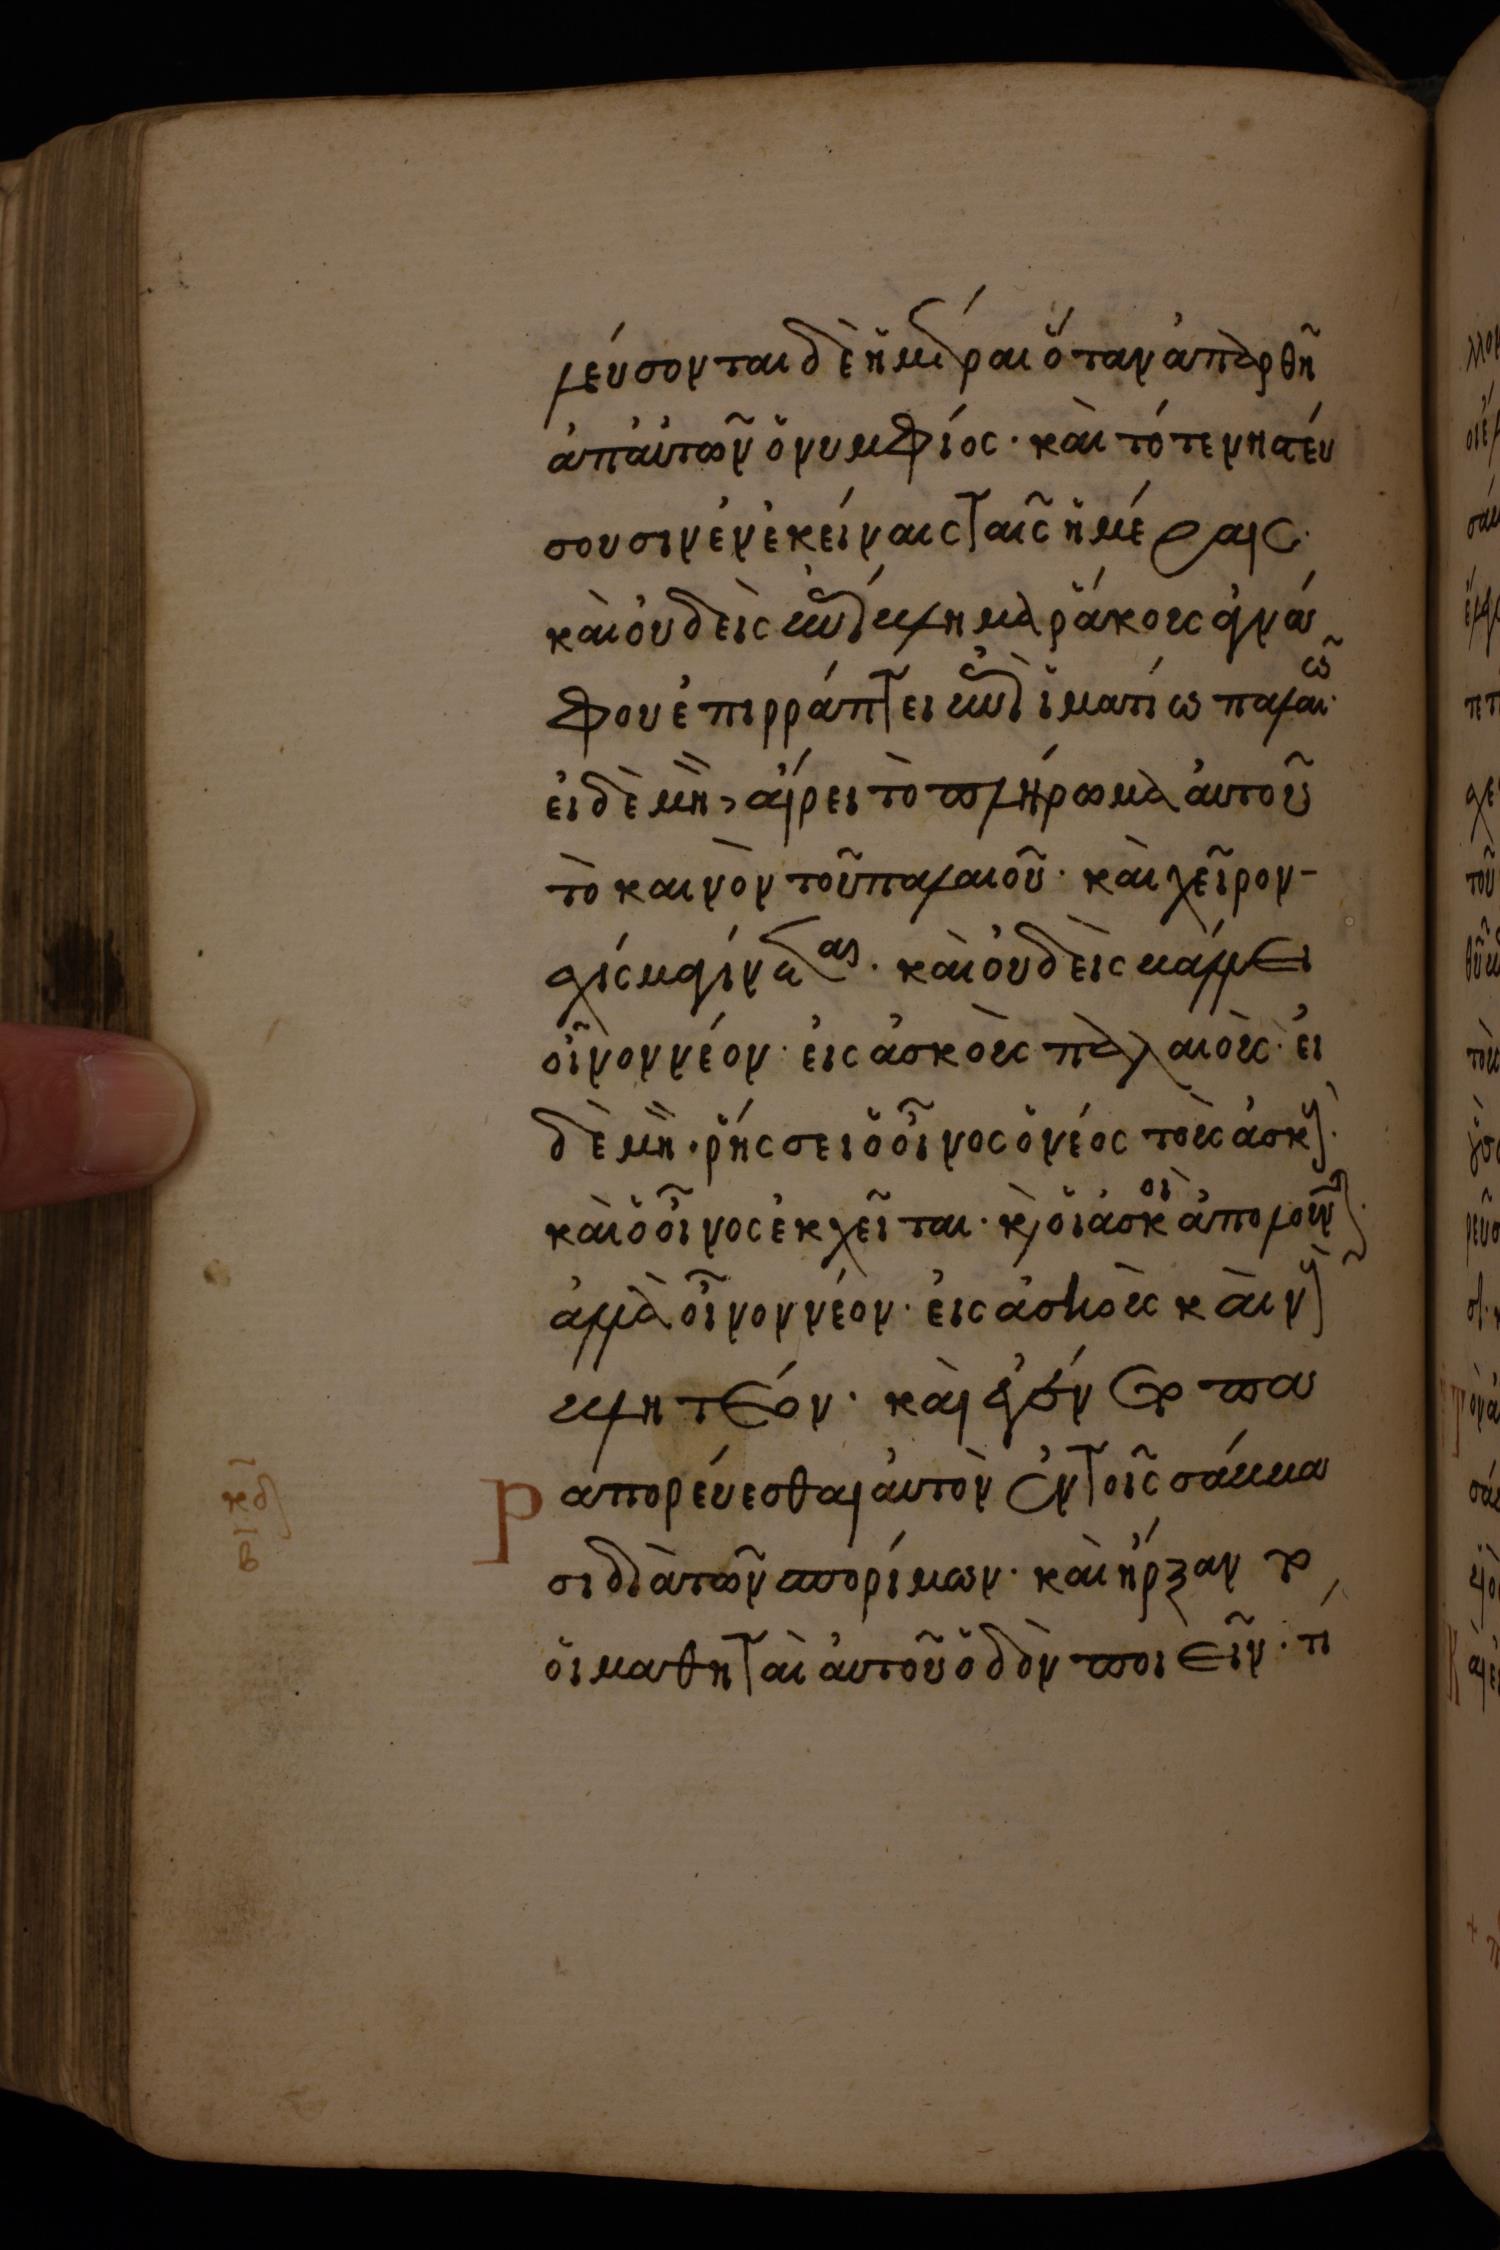 λεύσονται δὲ ἡμέραι ὅταν ἀπαρθῆ
ἀπ' αὐτῶν ὁ νυμφίος· καὶ τότε νηστεύ
σουσιν ἐν ἐκείναις ταῖς ἡμέραις·
καὶ οὐδεὶς ἐπίβλημα ῥάκους ἀγνά
φου ἐπιρράπτει ἐπὶ ἱματίω παλαιῶ·
εἰ δὲ μὴ, αἴρει τὸ πλήρωμα αὐτοῦ
τὸ καινὸν τοῦ παλαιοῦ· καὶ χεῖρον
σχίσμα γίνεται· καὶ οὐδεὶς βάλλει
οἶνον νέον· εἰς ἀσκοὺς παλαιοὺς· εἰ
δὲ μὴ· ῥήσσει ὁ οἶνος ὁ νέος τοὺς ἀσκούς·
καὶ ὁ οἶνος ἐκχεῖται· καὶ οἱ ἀσκοὶ ἀπολοῦνται·
ἀλλὰ οἶνον νέον· εἰς ἀσκοὺς καινοὺς
βλητέον· καὶ ἐγένετο πα
ραπορεύεσθαι αὐτὸν ἐν τοῖς σάββα
σι διὰ τῶν σπορίμων· καὶ ἤρξαντο
οἱ μαθηταὶ αὐτοῦ ὁδὸν ποιεῖν· τί
κδ